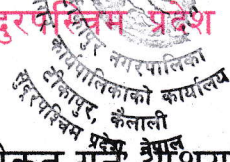 दुरपश्चिम प्रदेश
नगरपालिका
कार्यपालिकाको कार्यालय
टीकापुर, कैलाली
सुदूरपश्चिम प्रदेश नेपाल